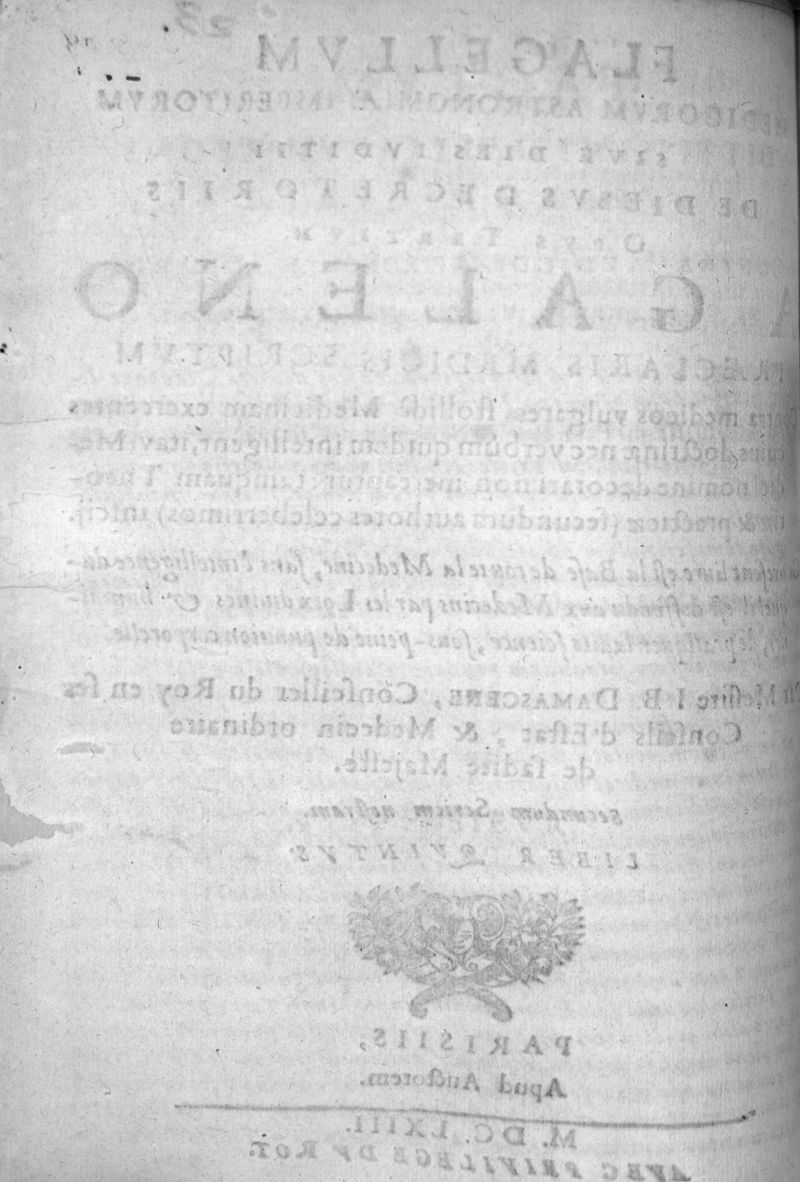 23
FLAGELLVM
MEDICORVM ASTRONOMIÆ IMPERITORVM
SIVE DIES IVDITII
DE DIEBVS DECRETORIIS
OPVS TERTIVM
A GALENO
PRÆCLARIS MEDICIS SCRIPTVM
Contra medicos vulgares, stollidè Medicinam exercentes,
cuius doctrinæ nec verbum quidem intelligent, ita vt Me-
dici nomine decorari non mereantur: tamquam Theo-
riæ & practicæ (secundum authores celeberrimos) inscij.
liure est la Base de toute la Medecine, sans l'intelligence du-
quel il est deffendu aux Medecins par les Loix diuines & humai-
nes, de pratiquer ladite science, sous-peine de punition corporelle.
Messire I B. DAMASCENE, Conseiller du Roy en ses
Conseils d'Estat, & Medecin ordinaire
de sadite Majesté.
secundum Seriem nostram.
LIBER QVINTVS
PARISIIS,
Apud Auctorem.
M. DC. LXIII.
AVEC PRIVILEGE DV ROY.